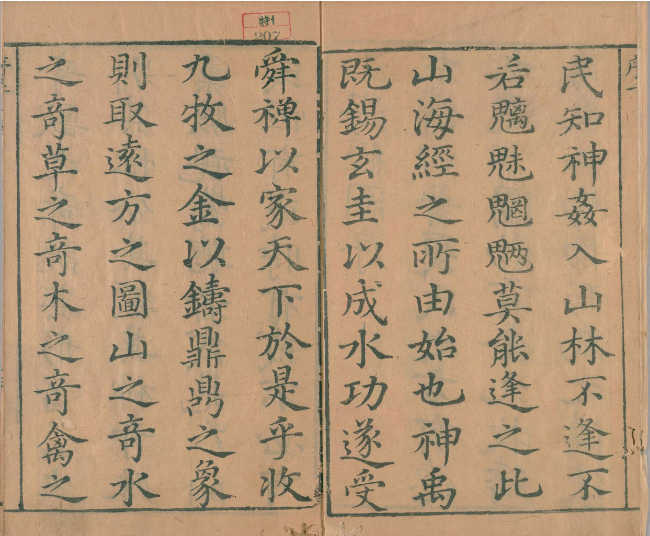 民知神姦入山林不逢不
若魑魅魍魎莫能逢之此
山海經之所由始也神禹
既錫玄圭以成水功遂受
舜禅以家天下於是乎收
九牧之金以鑄鼎鼎之象
則取遠方之圖山之奇水
之奇草之奇木之奇禽之
特1
207